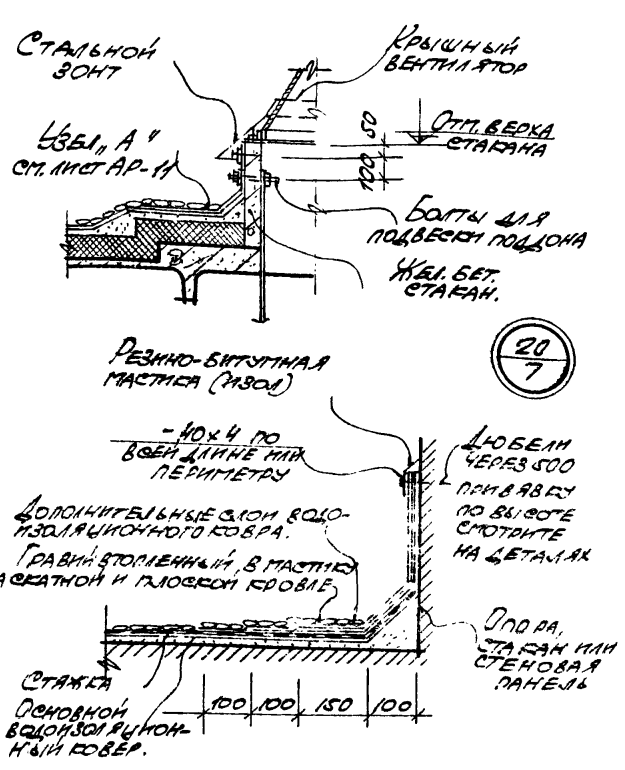 Стальной
зонт
Крышный
вентилятор
Узел „А“
см. лист АР-11
50
100
Отм. верха
стакана
Болты для
подвески поддона
Жел. бет.
стакан.
20
7
Резино-битумная
мастика (изол)
- 40х4 по
всей длине или
периметру
Дюбели
через 500
привязку
по высоте
смотрите
на деталях
Дополнительные слои водо-
изоляционного ковра.
Гравий втопленный, в мастику
а скатной и плоской кровле
Опора,
стакан или
стеновая
панель
Стяжка
Основной
водоизоляцион-
ный ковер.
100 100 150 100